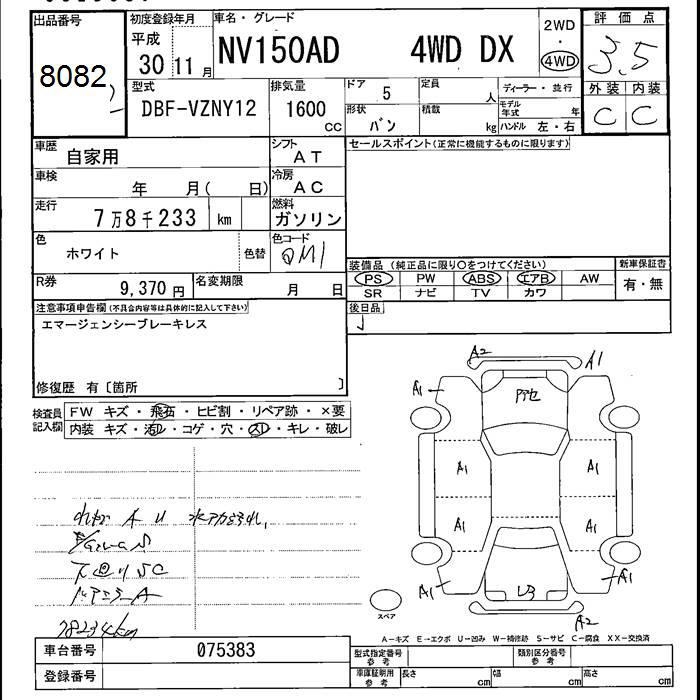 出品番号
8082
初度登録年月
平成
30 11 月
車名・グレード
NV150AD 4WD DX
2WD
・
4WD
評価点
3.5
外装 内装
C C
型式
DBF-VZNY12
排気量
1600
CC
ドア
5
形状
バン
定員
人
積載
kg
ディーラー・並行
モデル年式 年
ハンドル 左・右
車歴
自家用
シフト
AT
セールスポイント(正常に機能するものに限ります)
車検
年 月( 日)
冷房
AC
走行
7万8千233 km
燃料
ガソリン
色
ホワイト
色替
色コード
QM1
R券
9,370 円
名変期限
月 日
装備品 (純正品に限り○をつけてください)
新車保証書
PS PW ABS エアB AW
有・無
SR ナビ TV カワ
後日品
注意事項申告欄(不具合内容等は具体的に記入して下さい)
エマージェンシーブレーキレス
修復歴 有〔箇所 〕
検査員記入欄
FW キズ・飛石・ヒビ割・リペア跡・×要
内装 キズ・汚レ・コゲ・穴・スレ・キレ・破レ
A U
下回りSC
ドアミラーA
78234km
A2
A1
A1
A1
A1
A1
A1
A1
A1
A2
スペア
A-キズ E-エクボ U-凹み W-補修跡 S-サビ C-腐食 XX-交換済
車台番号
075383
登録番号
型式指定番号
参考
類別区分番号
参考
車庫証明用
参考
長さ cm
幅 cm
高さ cm